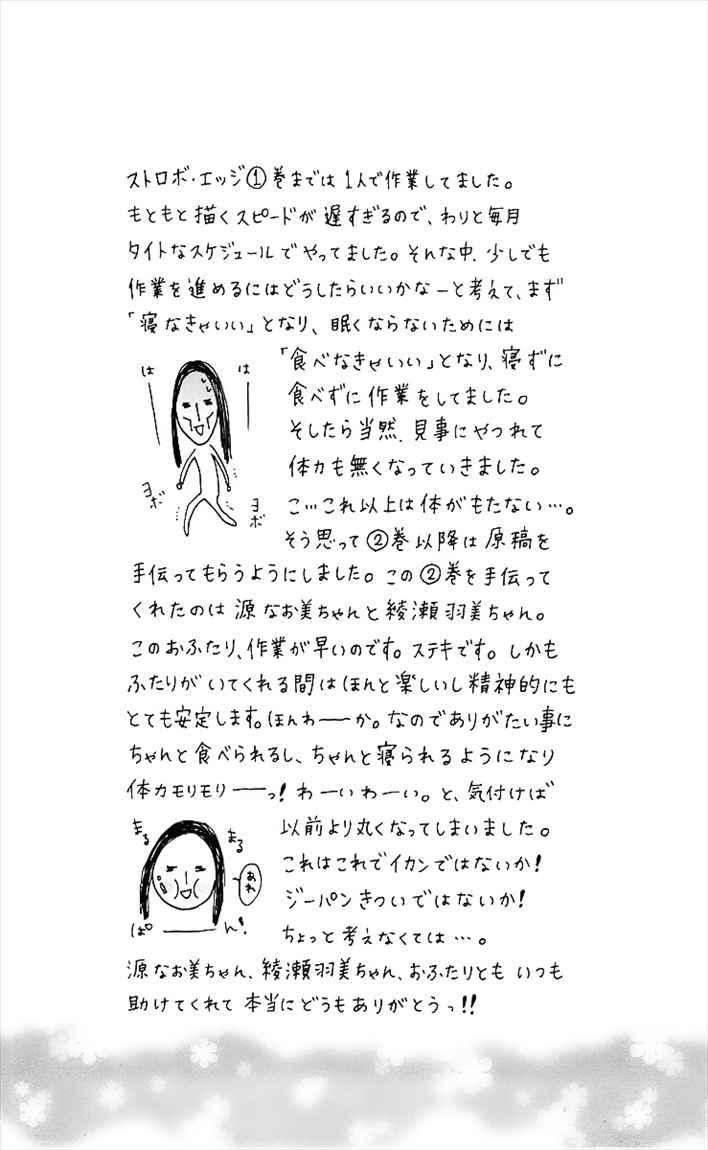 ストロボ・エッジ①巻までは1人で作業してました。
もともと描くスピードが遅すぎるので、わりと毎月
タイトなスケジュールでやってました。そんな中、少しでも
作業を進めるにはどうしたらいいかなーと考えて、まず
「寝なきゃいい」となり、眠くならないためには
「食べなきゃいい」となり、寝ずに
食べずに作業をしてました。
そしたら当然、見事にやつれて
体力も無くなっていきました。
こ…これ以上は体がもたない…。
そう思って②巻以降は原稿を
は
は
ヨボ
ヨボ
手伝ってもらうようにしました。この②巻を手伝って
くれたのは源なお美ちゃんと綾瀬羽美ちゃん。
このおふたり、作業が早いのです。ステキです。しかも
ふたりがいてくれる間はほんと楽しいし精神的にも
とても安定します。ほんわーーか。なのでありがたい事に
ちゃんと食べられるし、ちゃんと寝られるようになり
体力モリモリーーっ!わーいわーい。と、気付けば
以前より丸くなってしまいました。
これはこれでイカンではないか!
ジーパンきついではないか!
ちょっと考えなくては…。
まる
まる
あれ
ぱーーん!
源なお美ちゃん、綾瀬羽美ちゃん、おふたりともいつも
助けてくれて本当にどうもありがとうっ!!